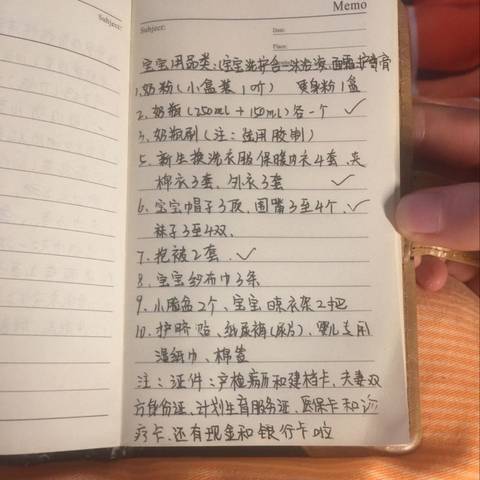 Memo
Subject:
Subject:
Date:
Place:
宝宝用品类:(宝宝洗护合一沐浴液.面霜.护臀膏
1.奶粉(小盒装1阶) 爽身粉1盒
2.奶瓶(250ml+150ml)各一个 ✓
3、奶瓶刷(注:强用胶制)
5、新生换洗衣服保暖内衣4套、夹
棉衣3套、外衣3套 ✓
6、宝宝帽子3顶、围嘴3至4个、✓
袜子3至4双、
7、抱被2套、✓
8、宝宝纱布巾3条
9、小脸盆2个、宝宝晾衣架2把
10、护脐贴、纸尿裤(尿片)、婴儿专用
湿纸巾、棉签
注:证件:产检病历和建档卡、夫妻双
方身份证、计划生育服务证、医保卡和诊
疗卡、还有现金和银行卡啦